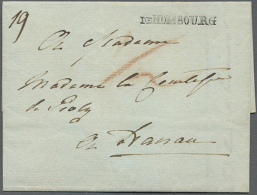 19
DE HOMBOURG
A Madame
Madame la Comtesse
de
A Nassau